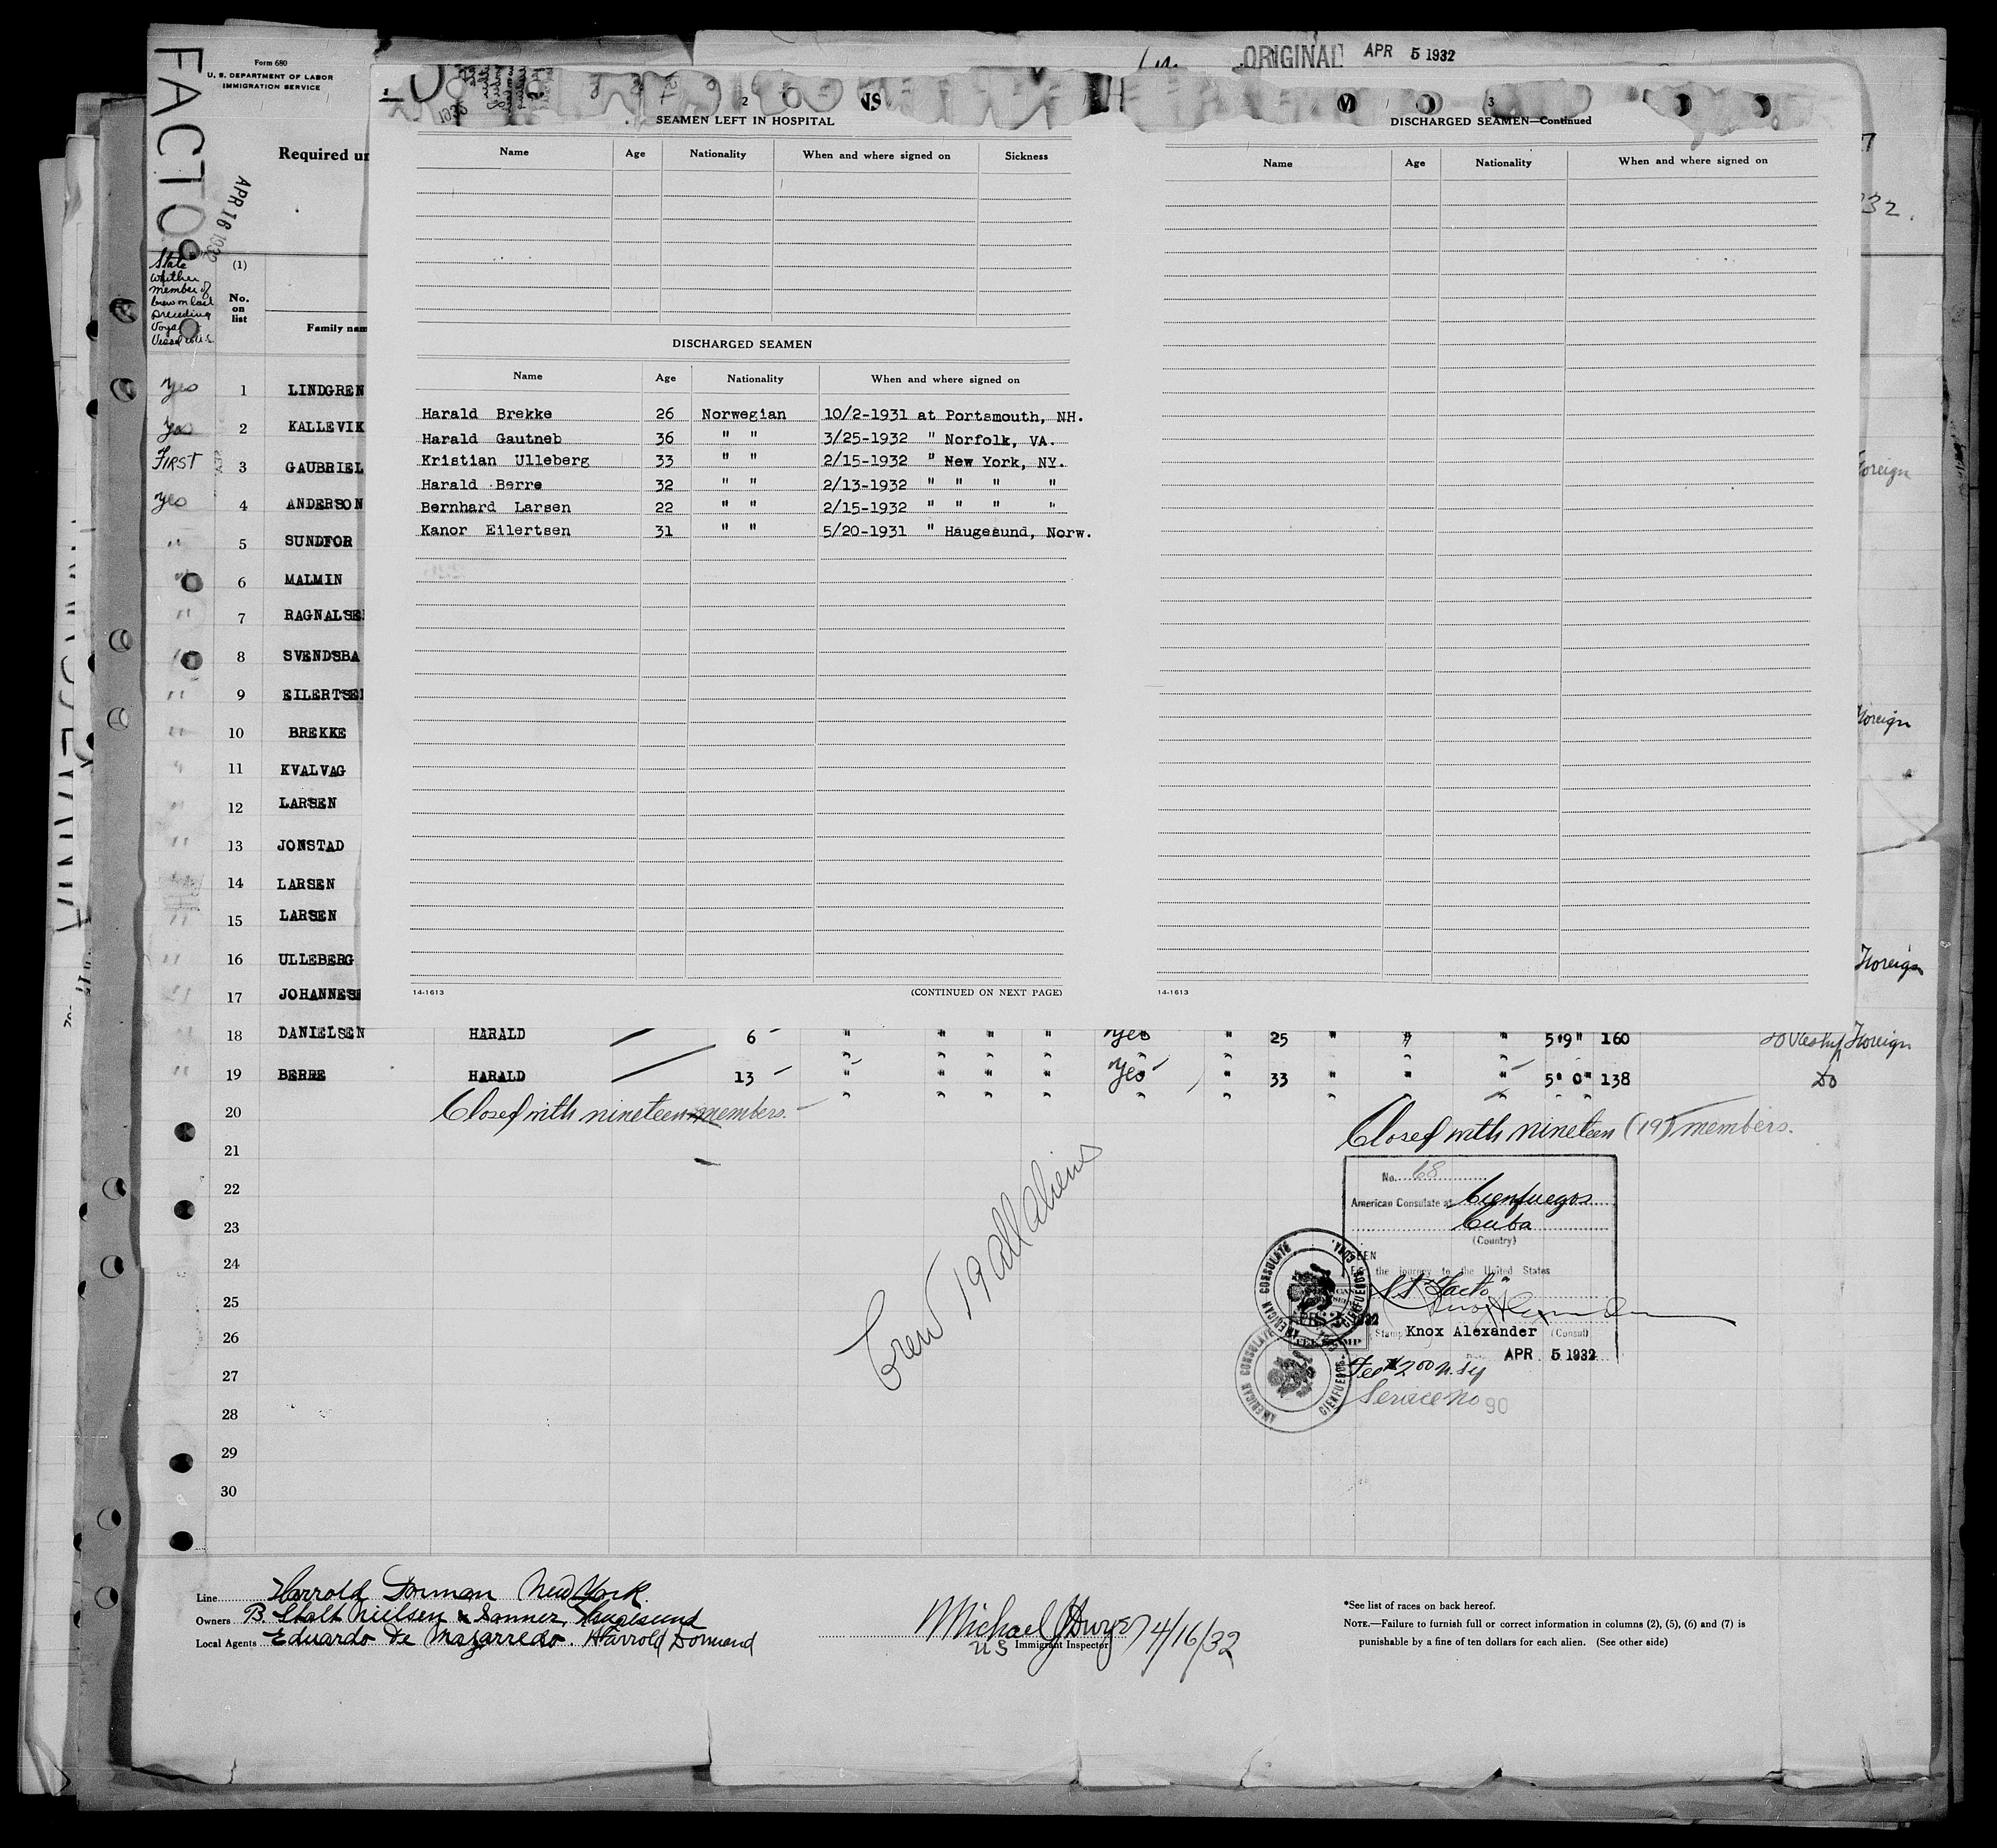 FACTO
Form 680
U. S. DEPARTMENT OF LABOR
IMMIGRATION SERVICE
ORIGINAL APR 5 1932
Required un
APR 16 1932
32.
State whether member of crew on last preceding voyage
(1)
No. on list
Family nam
2
SEAMEN LEFT IN HOSPITAL
Name Age Nationality When and where signed on Sickness
DISCHARGED SEAMEN
Name Age Nationality When and where signed on
Harald Brekke 26 Norwegian 10/2-1931 at Portsmouth, NH.
Harald Gautneb 36 " " 3/25-1932 " Norfolk, VA.
Kristian Ulleberg 33 " " 2/15-1932 " New York, NY.
Harald Berre 32 " " 2/13-1932 " " " "
Bernhard Larsen 22 " " 2/15-1932 " " " "
Kanor Eilertsen 31 " " 5/20-1931 " Haugesund, Norw.
14-1613 (CONTINUED ON NEXT PAGE)
3
DISCHARGED SEAMEN—Continued
Name Age Nationality When and where signed on
14-1613
Yes 1 LINDGREN
Yes 2 KALLEVIK
FIRST 3 GAUBRIEL Foreign
Yes 4 ANDERSON
" 5 SUNDFOR
" 6 MALMIN
" 7 RAGNALSE
" 8 SVENDSBA
" 9 EILERTSE
" 10 BREKKE Foreign
" 11 KVALVAG
" 12 LARSEN
" 13 JONSTAD
" 14 LARSEN
" 15 LARSEN
" 16 ULLEBERG Foreign
" 17 JOHANNES
18 DANIELSEN HARALD 6 " " " " Yes " 25 " " " 5'9" 160 Foreign
" 19 BERRE HARALD 13 " " " " Yes " 33 " " " 5' 0" 138 Do
20 Closed with nineteen members.
Closed with nineteen (19) members.
21
22
23
24
25
26
27
28
29
30
Crew 19 all aliens
No. 68
American Consulate at Cienfuegos
Cuba
(Country)
SEEN
the journey to the United States
SS "Facto"
Knox Alexander
Stamp Knox Alexander (Consul)
APR 5 1932
AMERICAN CONSULATE
CIENFUEGOS, CUBA.
AMERICAN CONSULATE
CIENFUEGOS
Fee $2.00
Service No 90
Line Harrold Dorman New York
Owners B. Stolt Nielsen & Sønner, Haugesund
Local Agents Eduardo De Mazarredo. Harrold Dormand
Michael J Dwyer 4/16/32
US Immigrant Inspector
*See list of races on back hereof.
NOTE.—Failure to furnish full or correct information in columns (2), (5), (6) and (7) is
punishable by a fine of ten dollars for each alien. (See other side)